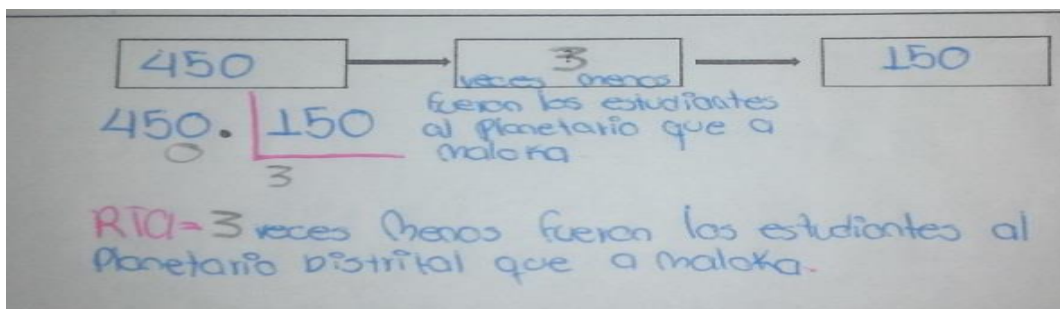 450 3 150
veces menos
fueron los estudiantes
al Planetario que a
maloka
450. 150
0
3
RTA= 3 veces menos fueron los estudiantes al
Planetario Distrital que a maloka.